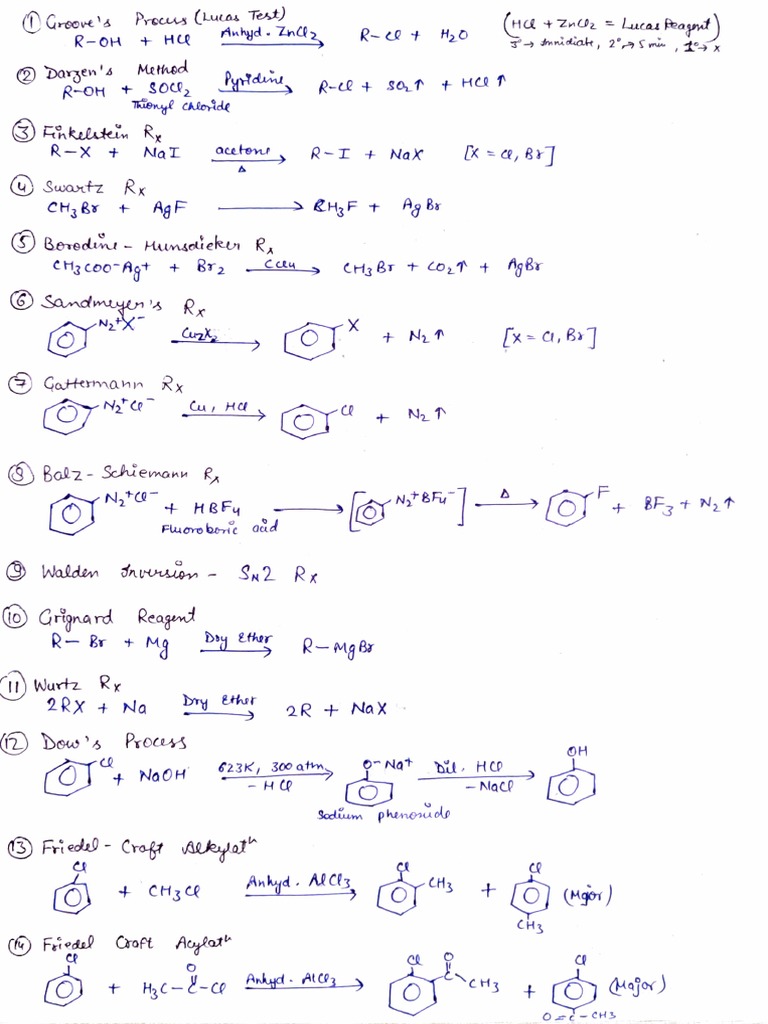 ① Groove's Process (Lucas Test)
R-OH + HCl Anhyd. ZnCl2 → R-Cl + H2O (HCl + ZnCl2 = Lucas Reagent)
3° → Immidiate, 2° → 5 min, 1° → x
② Darzen's Method
R-OH + SOCl2 Pyridine → R-Cl + SO2↑ + HCl↑
Thionyl chloride
③ Finkelstein Rx
R-X + NaI acetone Δ → R-I + NaX [X = Cl, Br]
④ Swartz Rx
CH3Br + AgF → CH3F + AgBr
⑤ Borodine - Hunsdieker Rx
CH3COO-Ag+ + Br2 CCl4 → CH3Br + CO2↑ + AgBr
⑥ Sandmeyer's Rx
N2+X- Cu2X2 → X + N2↑ [X = Cl, Br]
⑦ Gattermann Rx
N2+Cl- Cu, HCl → Cl + N2↑
⑧ Balz - Schiemann Rx
N2+Cl- + HBF4 → [N2+BF4-] Δ → F + BF3 + N2↑
Fluoroboric acid
⑨ Walden Inversion - SN2 Rx
⑩ Grignard Reagent
R-Br + Mg Dry Ether → R-MgBr
⑪ Wurtz Rx
2RX + Na Dry Ether → 2R + NaX
⑫ Dow's Process
Cl + NaOH 623K, 300 atm - HCl → O-Na+ Dil. HCl -NaCl → OH
Sodium phenoxide
⑬ Friedel - Craft Alkylatn
Cl + CH3Cl Anhyd. AlCl3 → Cl CH3 + Cl CH3 (Major)
⑭ Friedel Craft Acylatn
Cl + H3C-C(O)-Cl Anhyd. AlCl3 → Cl O C CH3 + Cl O=C-CH3 (Major)